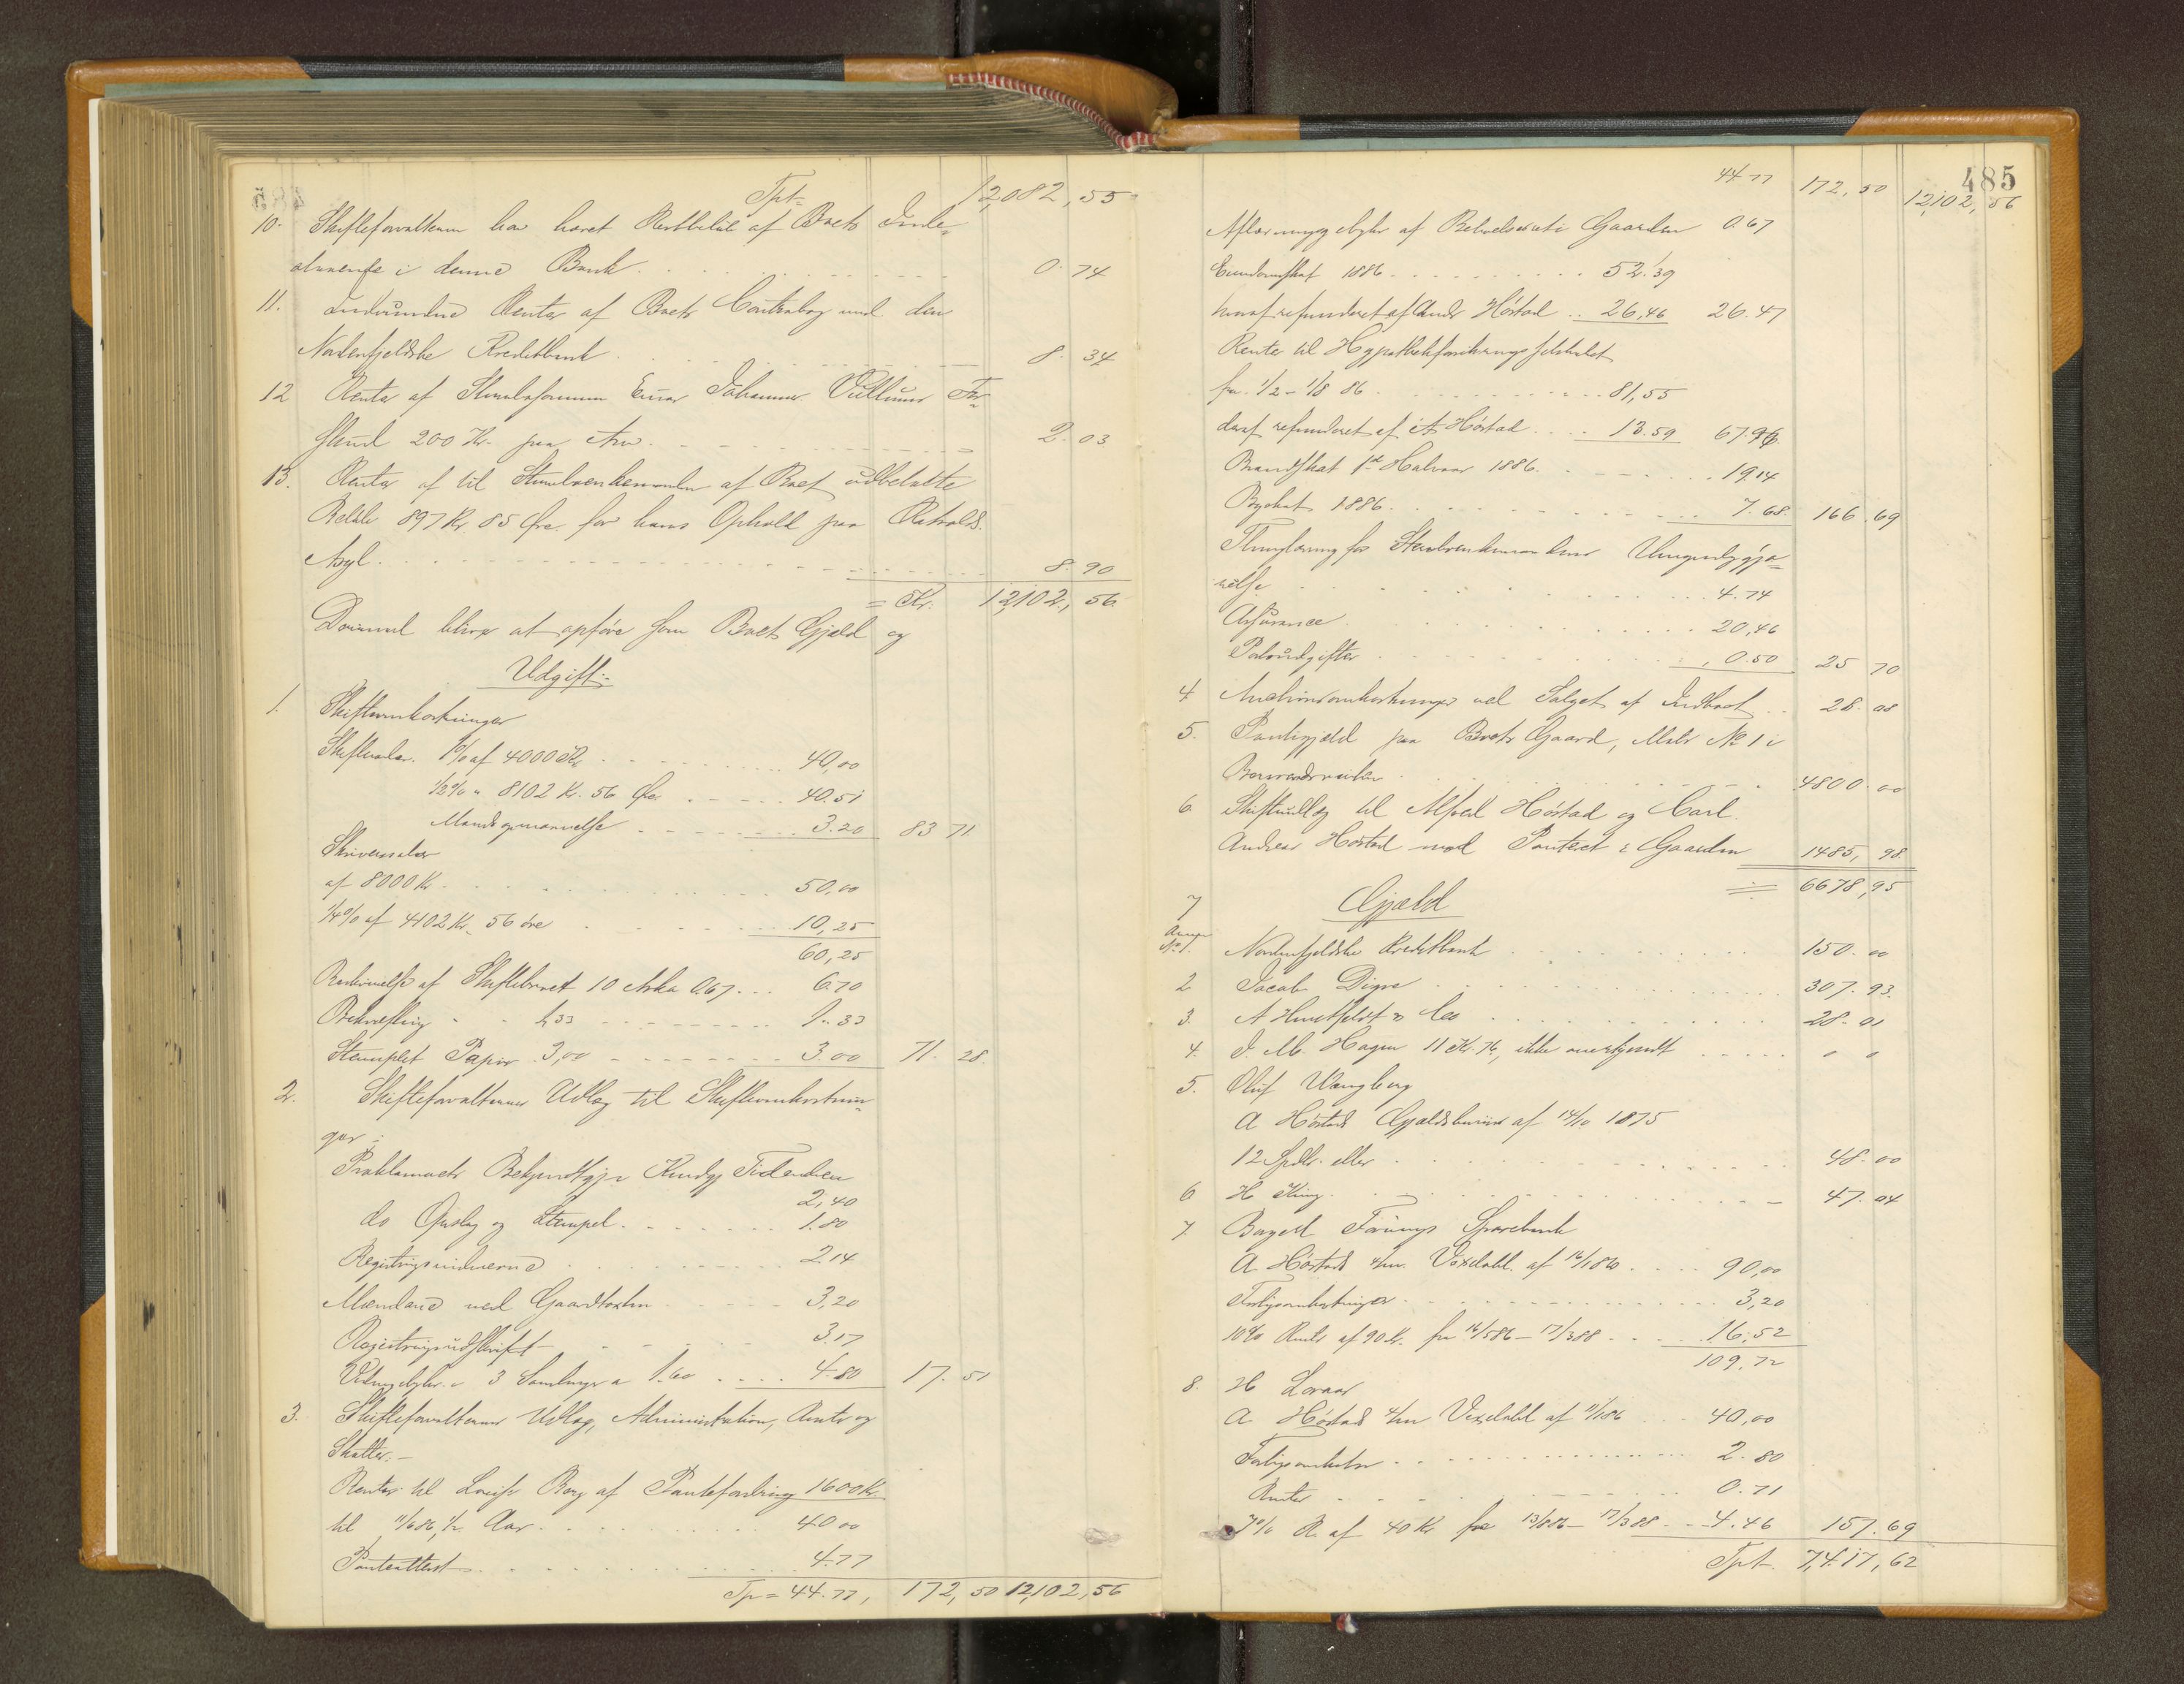 Tpt= 12,082,55
10. Skifteforvalteren har hævet Restbeløb af Boets Inde-
staaende i denne Bank 0.74
11. Indvundne Renter af Boets Contrabog med den
Nordenfjeldske Kreditbank 8.34
12 Renter af Johannes For-
skud 200 Kr. paa Arv 2.03
13. Renter af til af Boet udbetalte
Beløb 897 Kr. 85 Øre for hans Ophold paa Rotvolds
Asyl 8.90
= Kr. 12,102,56
Derimod bliver at opføre som Boets Gjæld og
Udgift:
1. Skifteomkostninger
Skiftesalær 1% af 4000 Kr 40,00
½% " 8102 Kr. 56 Øre 40.51
Mænds opnævnelse 3.20 83 71.
Skriversalær
af 8000 Kr. 50,00
¼% af 4102 Kr. 56 øre 10,25
60,25
Beskrivelse af Skiftebrevet 10 Arka 0.67 6.70
Bekræftelse 1,33 1.33
Stemplet Papir 3,00 3.00 71. 28.
2. Skifteforvalterens Udlæg til Skifteomkostnin-
ger:
Proklamaets Bekjendtgj. i Kundgj Tidenden
2,40
do Opslag og Stempel 1.80
Registringsmændene 2.14
Mændene ved Gaardtaxten 3,20
Registringsudskrift 3.17
3 Samlinger a 1.60 4.80 17.51
3. Skifteforvalterens Udlæg, Administration, Renter og
Skatter.-
Renter til Louise Borg af Pantefordring 1600 Kr.
til 11/6 86, ½ Aar 40 00
Panteattest 4.77
Tp = 44.77, 172,50 12,102,56
485
44 77 172,50 12,102,56
af i Gaarden 0.67
Eiendomsskat 1886 52.39
heraf refunderet af Ands Höstad 26,46 26.47
Renter til Hypothekforeningsselskabet
fra 1/2 - 1/8 86 81,55
deraf refunderet af A Höstad 13.59 67.96.
Brandskat 1ste Halvaar 1886 19.04
Byskat 1886 7.68 166.69
for Umyndiggjø-
relse 4.74
Assurance 20,46
Portoudgifter 0.50 25 70
4. Auctionsomkostninger ved Salget af Indboet 28.08
5. Pantegjæld paa Boets Gaard, Matr No 1 i
4800.00
6. Skifteudlæg til Alfred Höstad og Carl
Andreas Höstad med Panteret i Gaarden 1485,98.
= 6678,95
7 Gjæld
No 1. Nordenfjeldske Kreditbank 150.00
2 Jacob Digre 307.93.
3. A Huitfeldt & Co 28.01
4. J. M. Hagen 11 Kr. 76, ikke anerkjendt " "
5. Oluf Wangberg
A Höstads Gjældsbevis af 14/10 1875
12 Spdlr. eller 48.00
6 H King 47.04
7. Bageel Törings Sparebank
A. Höstads m/m. Vexelobl. af 90,00
Forligsomkostninger 3,20
10% Rente af 90 Kr. fra 14/5 86 - 17/3 88 16.52
109.72
8. H Loraas
A Höstads m/m Vexelobl af 11/1 86 40,00
Forligsomkostn 2.80
Renter 0.71
7% R. af 40 Kr fra 13/8 86 - 17/3 88 4.46 157.69
Tpt. 7,417,62